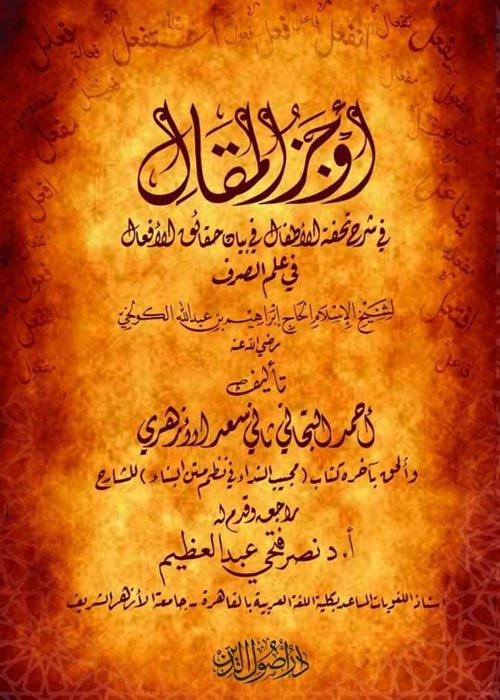 أوجز المقال
في شرح تحفة الأطفال في بيان حقائق الأفعال
في علم الصرف
لشيخ الإسلام الحاج إبراهيم بن عبد الله الكولخي
رضي الله عنه
تأليف
أحمد التجاني ثاني سعد الأزهري
وألحق بآخره كتاب (مجيب النداء في نظم متن البناء) للشارح
راجعه وقدم له
أ.د نصر فتحي عبد العظيم
أستاذ اللغويات المساعد بكلية اللغة العربية بالقاهرة - جامعة الأزهر الشريف
دار أصول الدين